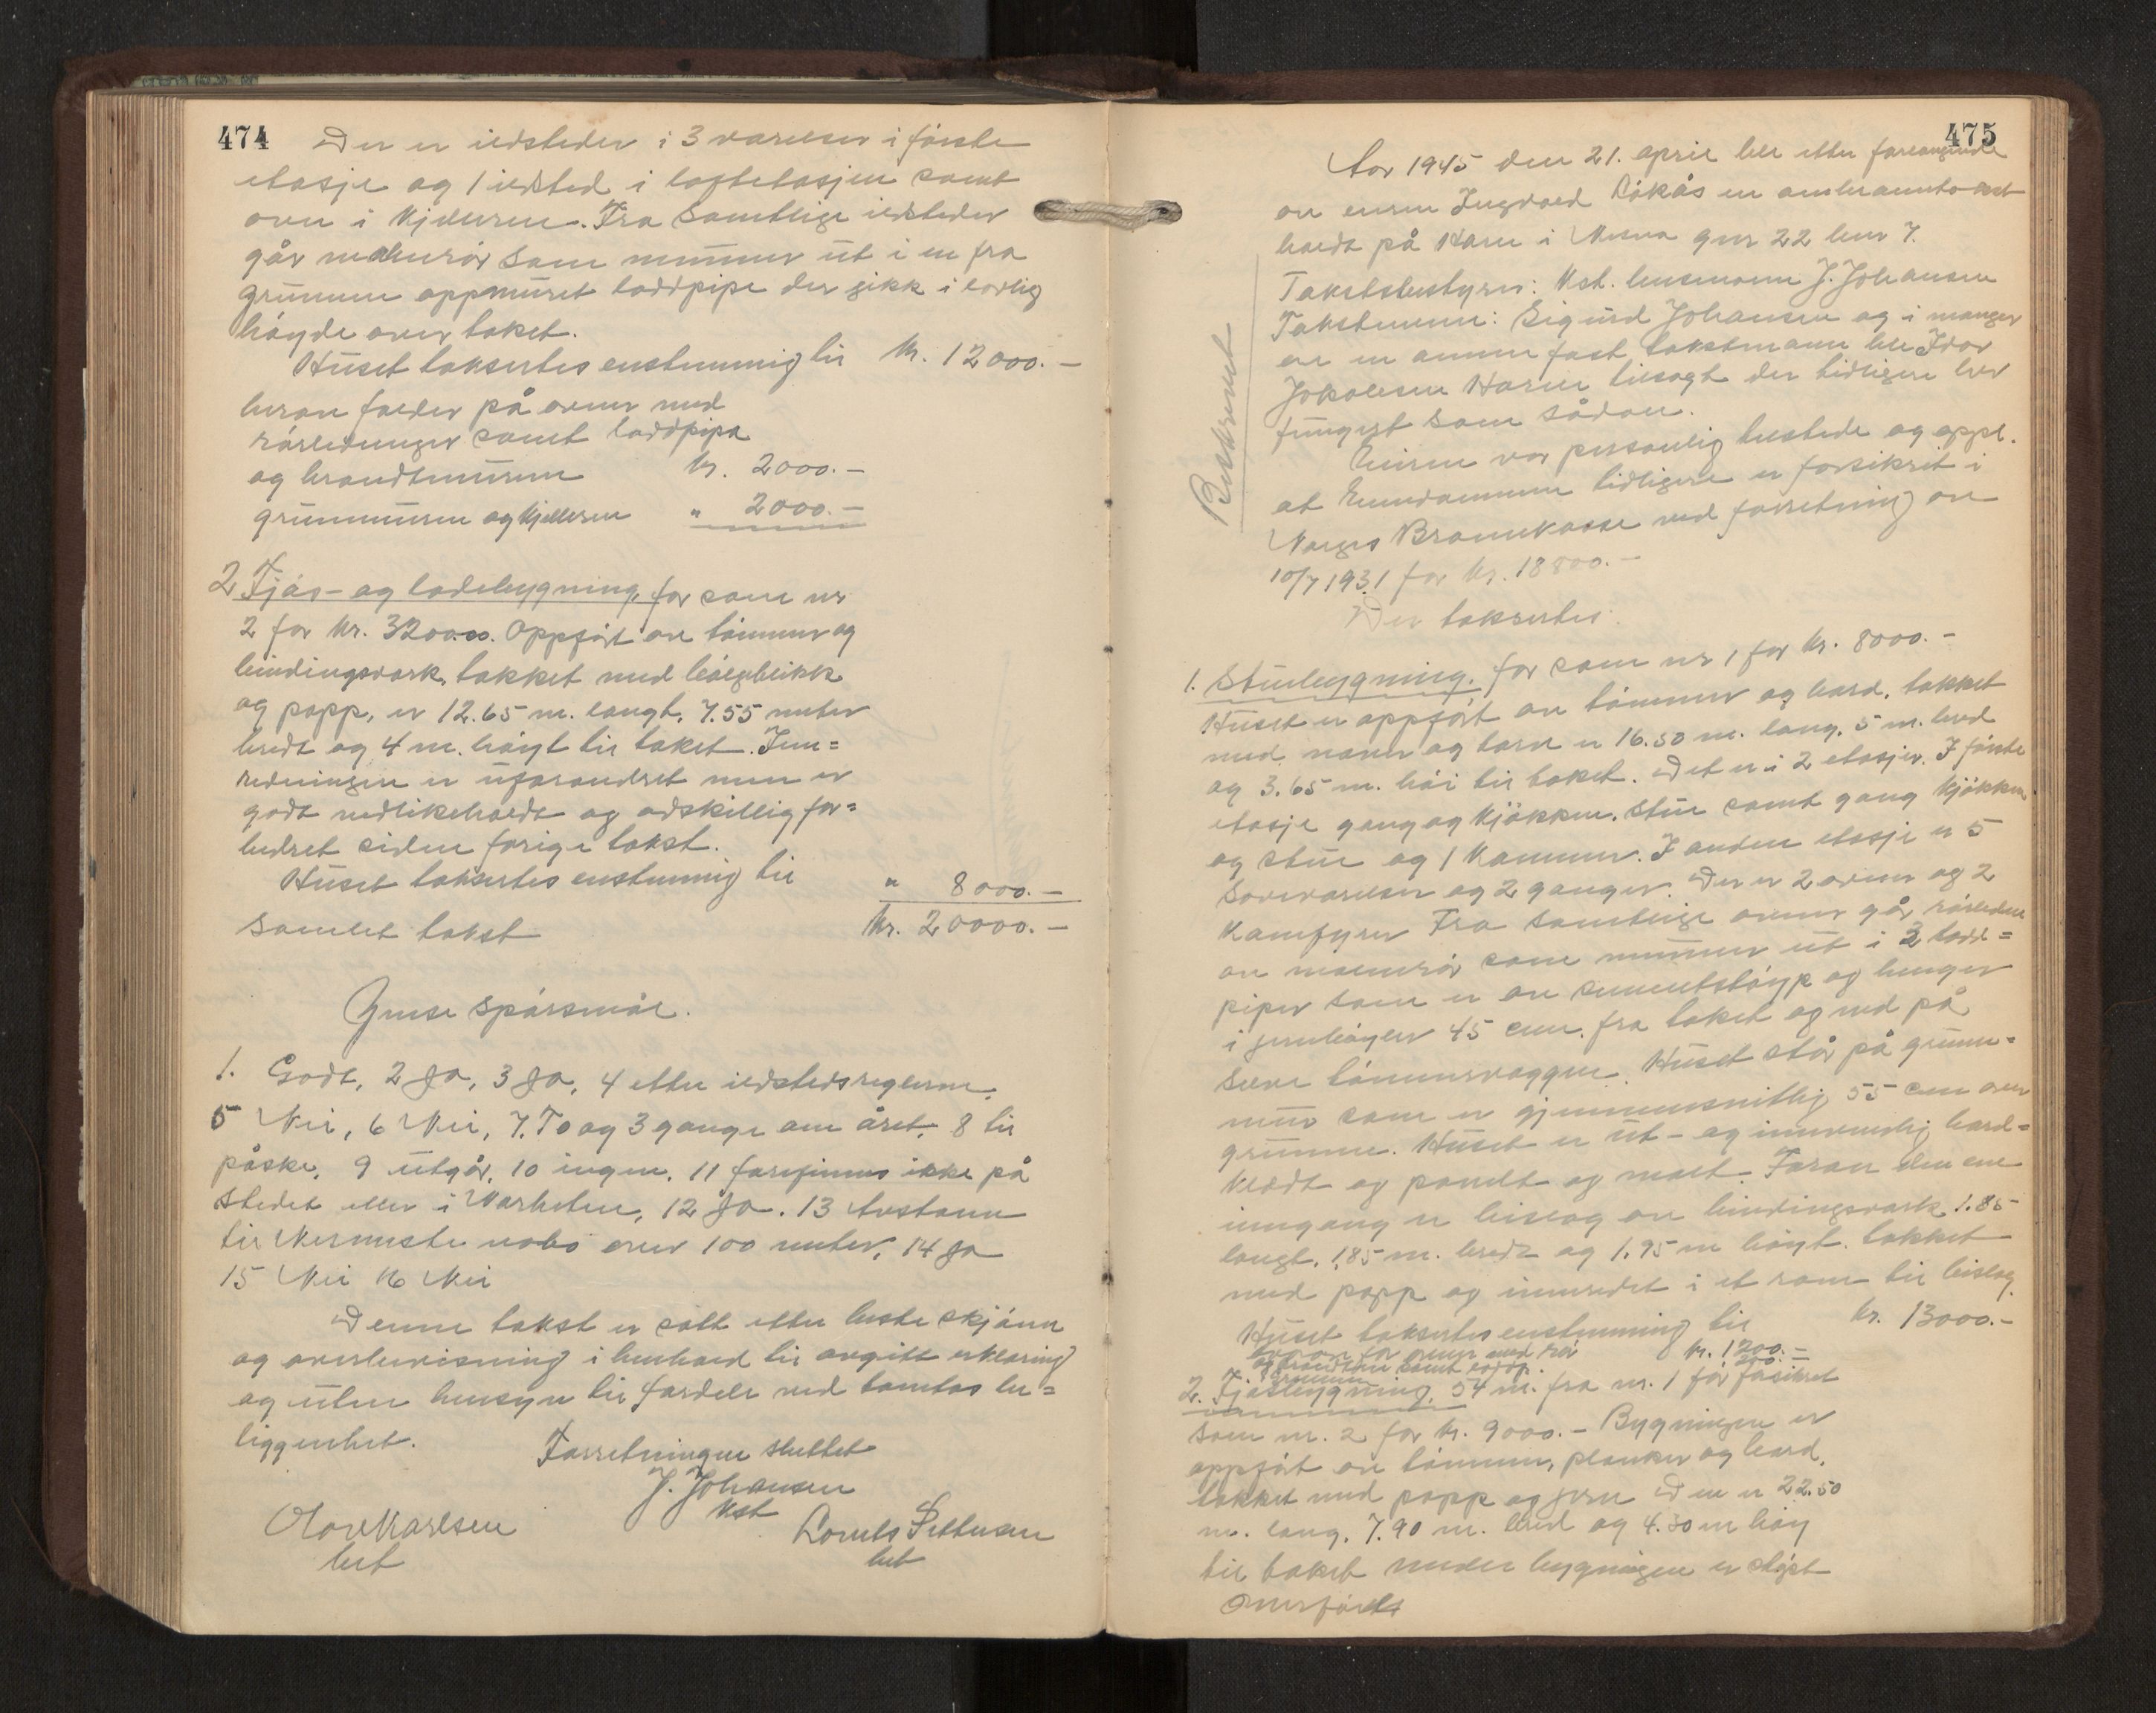 474
Der er ildsteder i 3 værelser i første
etasje og 1 ildsted i loftetasjen samt
ovn i kjelleren. Fra samtlige ildsteder
går som munner ut i en fra
grunnen oppmuret loddpipe der gikk i lovlig
høyde over taket.
Huset taksertes enstemmig til kr. 12000.-
herav falder på ovner med
rørledninger samt loddpipa
og brandtmuren kr. 2000.-
grunnmuren og kjelleren " 2000.-
2 Fjøs- og ladebygning, før som nr
2 for kr. 3200.00. Oppført av tømmer og
bindingsverk, takket med bølgeblikk
og papp, er 12.65 m. langt, 7.55 meter
bredt og 4 m. høyt til taket. Inn=
redningen er uforandret men er
godt vedlikeholdt og adskillig for=
bedret siden forige takst.
Huset taksertes enstemmig til " 8000.-
Samlet takst kr. 20000.-
Ymse spørsmål.
1. Godt, 2 Ja, 3 Ja, 4 etter ildstedsreglerne.
5 Nei, 6 Nei, 7. To og 3 gange om året, 8 til
påske, 9 utgår, 10 ingen, 11 forefinnes ikke på
stedet eller i nærheten, 12 Ja. 13 Avstann
til nærmeste nabo over 100 meter, 14 Ja
15 Nei 16 Nei
Denne takst er satt etter beste skjønn
og overbevisning i henhold til avgitt erklæring
og uten hensyn til fordele ved tomtas be=
liggenhet.
Forretningen sluttet
J. Johansen
kst
Olav Karlsen
best
475
Aar 1945 den 21. april ble etter forlangende
av eieren Ingvald Løkås en ombranntakst
holdt på Harm i gnr 22 bnr 7.
Takstbestyrer: Kst. lensmann J. Johansen
Takstmenn: Sigurd Johansen og i mangel
av en annen fast takstmann ble Idar
Jakobsen Harm tilsagt der tidligere har
fungert som sådan.
Eieren var personlig tilstede og oppl.
at Eiendommen tidligere er forsikret i
Norges Brannkasse ved forretning av
10/7 1931 for kr. 18800.-
Der taksertes:
1. Stuebygning, før som nr 1 for kr. 8000.-
Huset er oppført av tømmer og bord, takket
med never og torv er 16.50 m. lang, 5 m. bred
og 3.65 m. høi til taket. Det er i 2 etasjer. I første
etasje gang og kjøkken, stue samt gang kjøkken
og stue og 1 kammer. I anden etasje er 5
soveværelser og 2 ganger. Der er 2 ovner og 2
kamfyrer Fra samtlige ovner går rørledn
av som munner ut i 2 lodd=
piper som er av sementstøyp og henger
i jernbøyler 45 cm. fra taket og ned på
selve tømmerveggen. Huset står på grunn=
mur som er gjennemsnittlig 55 cm over
grunne. Huset er ut- og innvendig bord=
klædt og panelt og malt. Foran den ene
inngang er bislag av bindingsverk 1.85
langt, 1.85 m. bredt og 1.95 m høyt. takket
med papp og innredet i et rom til bislag.
Huset taksertes enstemmig til kr. 13000.-
herav for ovner med rør kr. 1200.-
og brandmur samt loddp.
2. Fjøsbygning, 54 m. fra nr. 1 før forsikret
som nr. 2 for kr. 9000.- Bygningen er
oppført av tømmer, planker og bord,
takket med papp og jern Den er 22.50
m. lang, 7.90 m. bred og 4.30 m høy
til taket under bygningen er støpt
Overføres